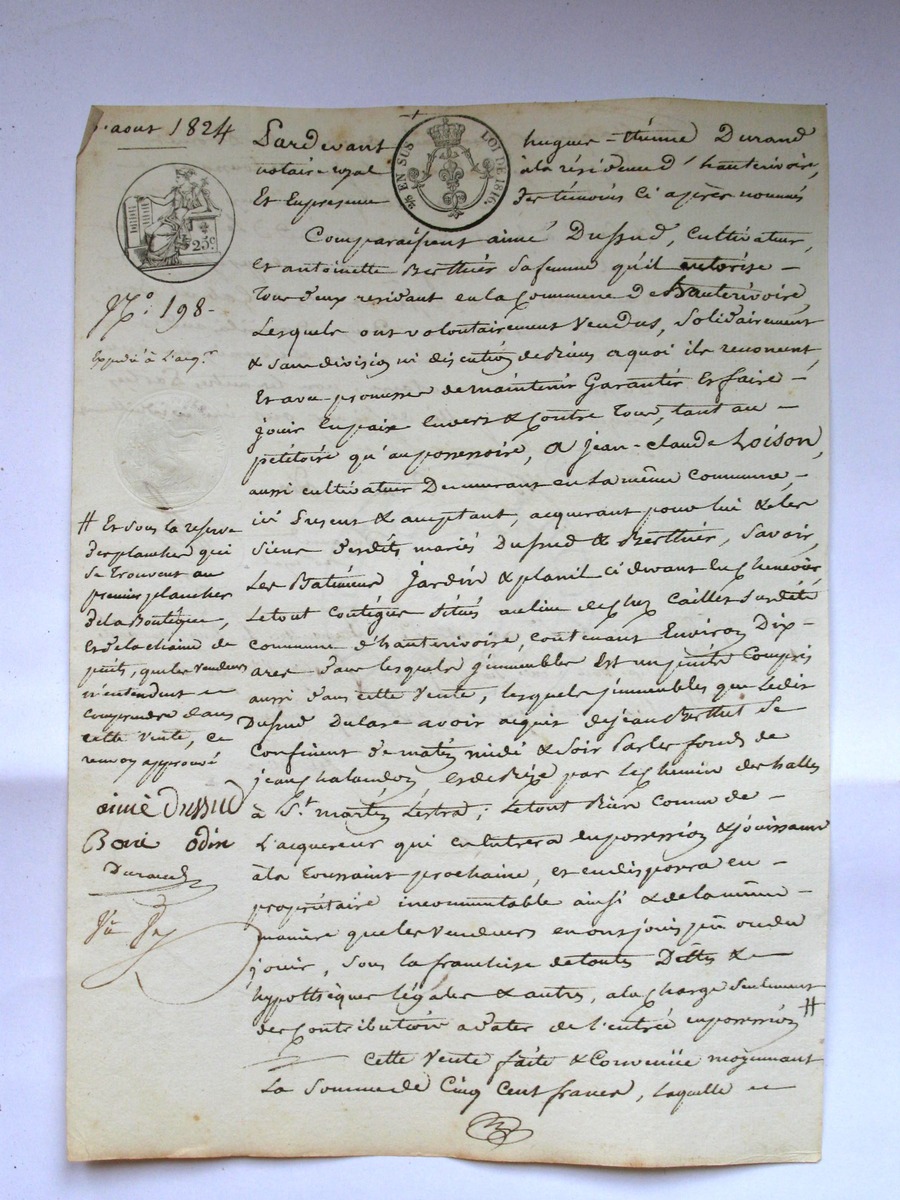 aout 1824
Pardevant hugues-étienne Durand
notaire royal à la résidence d'hauterivoire,
Et En presence Des témoins ci après nommés
98 EN SUS LOI DE 1816.
25c.
Comparaissent aimé Dussud, cultivateur,
Et antoinette Berthier sa femme qu'il autorise —
Tous deux residant en la Commune De hauterivoire,
N.o 198.
Lesquels ont volontairement Vendus, Solidairement
expedié à l'acq.r
& sans division ni discution de Biens a quoi ils renoncent,
Et avec promesse de maintenir Garantir Et faire —
jouir En paix Envers & Contre Tous, tant au —
pétitoire qu'au possessoire, a jean-claude Loison,
aussi cultivateur Demeurant en la même commune, —
ici present & acceptant, acquerant pour lui & les
siens desdits mariés Dussud & Berthier, savoir,
Les Batiments jardin & planil ci devant En Chenevier
Le tout contigus situés au lieu de Chez Caillet sus dite
commune d'hauterivoire, contenant Environ Dix —
ares dans lesquels immeubles Est un puits Compris
aussi dans cette Vente, lesquels immeubles que ledit
Dussud Declare avoir acquit de jean Berthet se
confinent de matin midi & soir Par les fonds de
jean Chalandon et de Bize par le Chemin des halles
à S.t martin Lestra; Le tout Bien connu de —
L'acquereur qui en Entrera en possession & jouissance
à la Toussaint prochaine, et en disposera en —
propriétaire incommutable ainsi & de la même —
maniere que les Vendeurs en ont joui pû ou du
jouir, sous la franchise de toutes Dettes & —
hypothèques légales & autres, a la Charge seulement
des Contributions a dater de l'entrée en possession #
Cette Vente faite & Convenüe moyennant
La Somme de Cinq Cent francs, laquelle —
# Et sous la reserve
des planches qui
se Trouvent au
premier plancher
de la Boutique,
et de la chaine du
puits, que les Vendeurs
n'entendent —
comprendre dans
cette Vente, ce
renvoi approuvé
aimé Dussud
Boiri odin
Durand